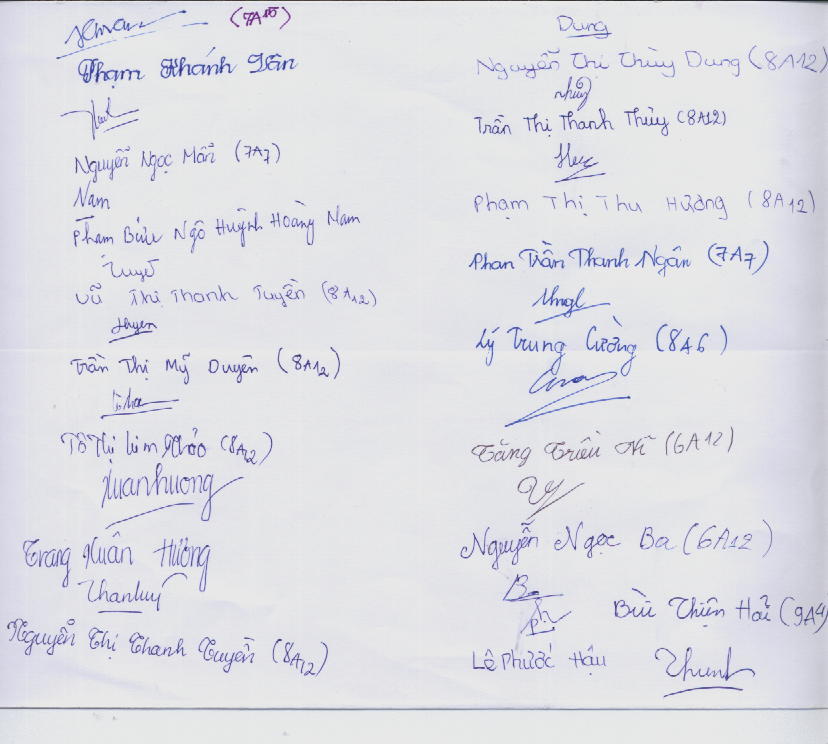 (7A10)
Phạm Khánh Vân
Nguyễn Ngọc Mẫn (7A7)
Nam
Phạm Bửu Ngô Huỳnh Hoàng Nam
Tuyền
Vũ Thị Thanh Tuyền (8A12)
Duyen
Trần Thị Mỹ Duyên (8A12)
Tô Thị Kim Thảo (8A12)
Xuanhuong
Trang Xuân Hương
Nguyễn Thị Thanh Tuyền (8A12)
Dung
Nguyễn Thị Thùy Dung (8A12)
Trần Thị Thanh Thủy (8A12)
Phạm Thị Thu Hương (8A12)
Phan Trần Thanh Ngân (7A7)
Lý Trung Cường (8A6)
Tăng Triều Vĩ (6A12)
Vy
Nguyễn Ngọc Ba (6A12)
Ba
Bùi Thiện Hải (9A4)
Lê Phước Hậu